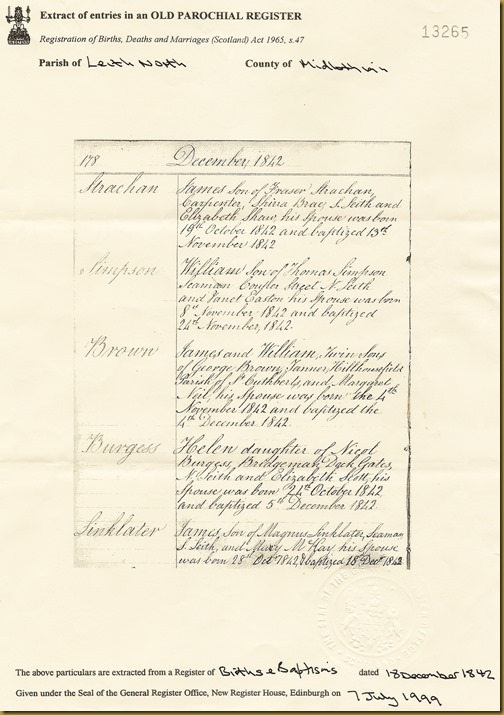 Extract of entries in an OLD PAROCHIAL REGISTER
13265
Registration of Births, Deaths and Marriages (Scotland) Act 1965, s.47
Parish of Leith North County of Midlothian
178 December, 1842
Strachan James Son of Fraser Strachan,
Carpenter, Brae, S. Leith and
Elizabeth Shaw, his Spouse was born
19th October 1842 and baptized 13th
November 1842
Simpson William Son of Thomas Simpson
Seaman Street N. Leith
and Janet Easton his Spouse was born
8th November 1842 and baptized
24th November, 1842.
Brown James and William, Twin Sons
of George Brown, Tanner, Hillhousefield
Parish of St Cuthberts, and Margaret
Neil, his Spouse was born the 4th
November 1842 and baptized the
4th December 1842.
Burgess Helen daughter of Nicol
Burgess, Bridgeman, Dock Gates,
N. Leith and Elizabeth Scott, his
Spouse was born 24th October 1842
and baptized 5th December 1842
Sinklater James, Son of Magnus Sinklater, Seaman
S. Leith, and Mary McKay his Spouse
was born 28th Octr 1842, & baptized 18th Decr 1842
The above particulars are extracted from a Register of Births & Baptisms dated 18 December 1842
Given under the Seal of the General Register Office, New Register House, Edinburgh on 7 July 1999